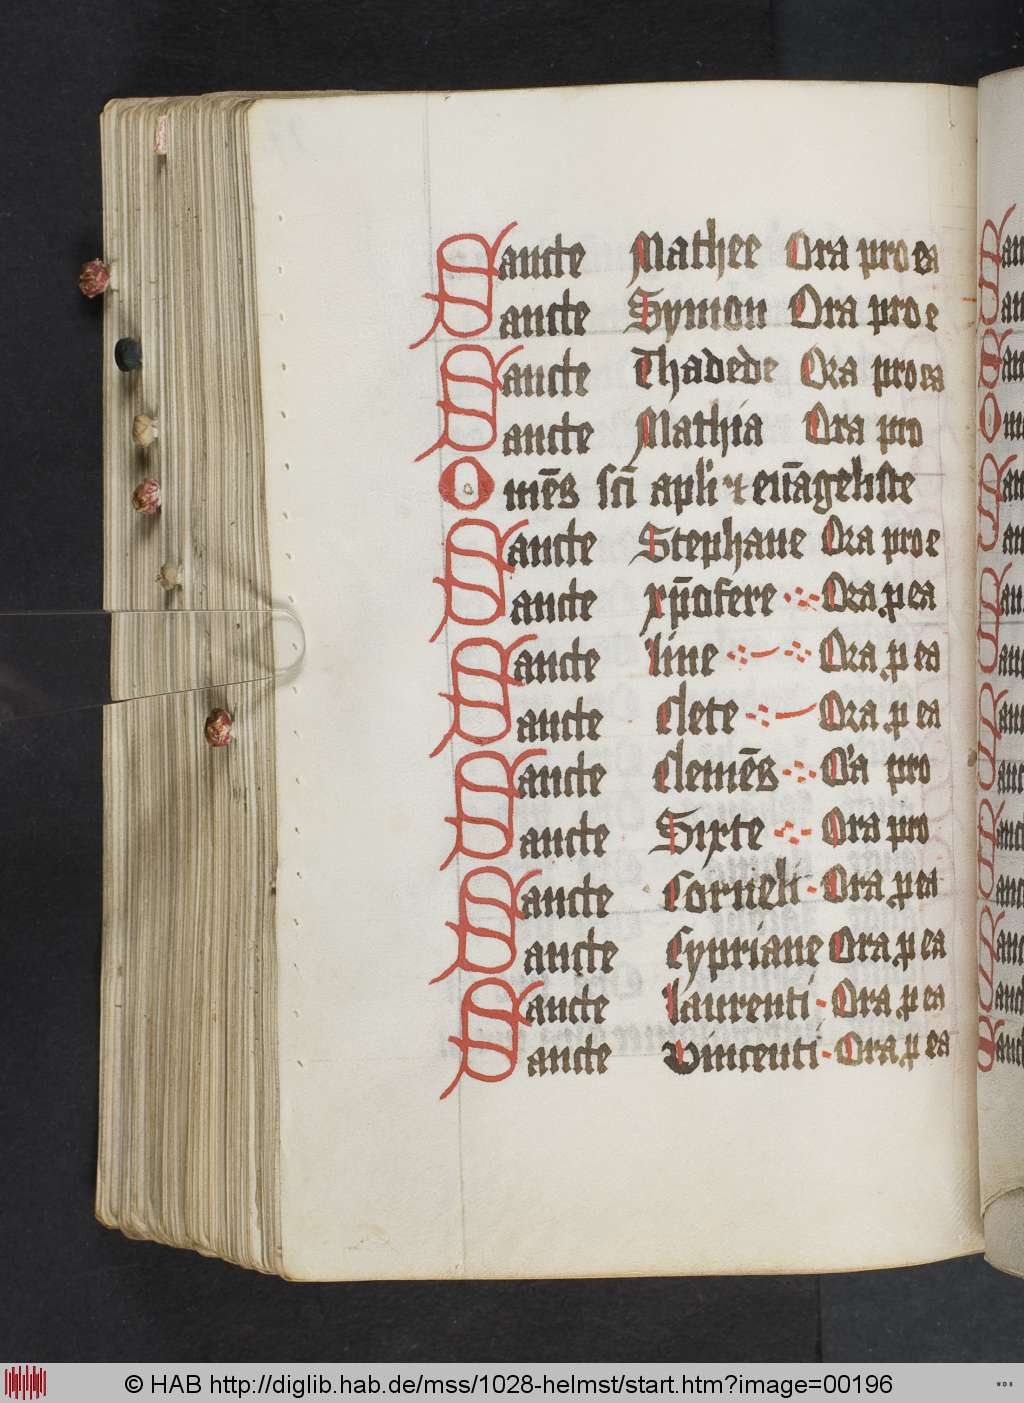 Sancte Mathee Ora pro ea
Sancte Symon Ora pro e
Sancte Thadede Ora pro ea
Sancte Mathia Ora pro
Omēs sci̅ apl̅i ⁊ eu̅ageliste
Sancte Stephane Ora pro e
Sancte xp̅ofere Ora p ea
Sancte line Ora p ea
Sancte Clete Ora p ea
Sancte Clemēs Oʼa pro
Sancte Sixte Ora pro
Sancte Corneli Ora p ea
Sancte Cypriane Ora p ea
Sancte laurenti Ora p ea
Sancte Vincenti Ora p ea
© HAB http://diglib.hab.de/mss/1028-helmst/start.htm?image=00196